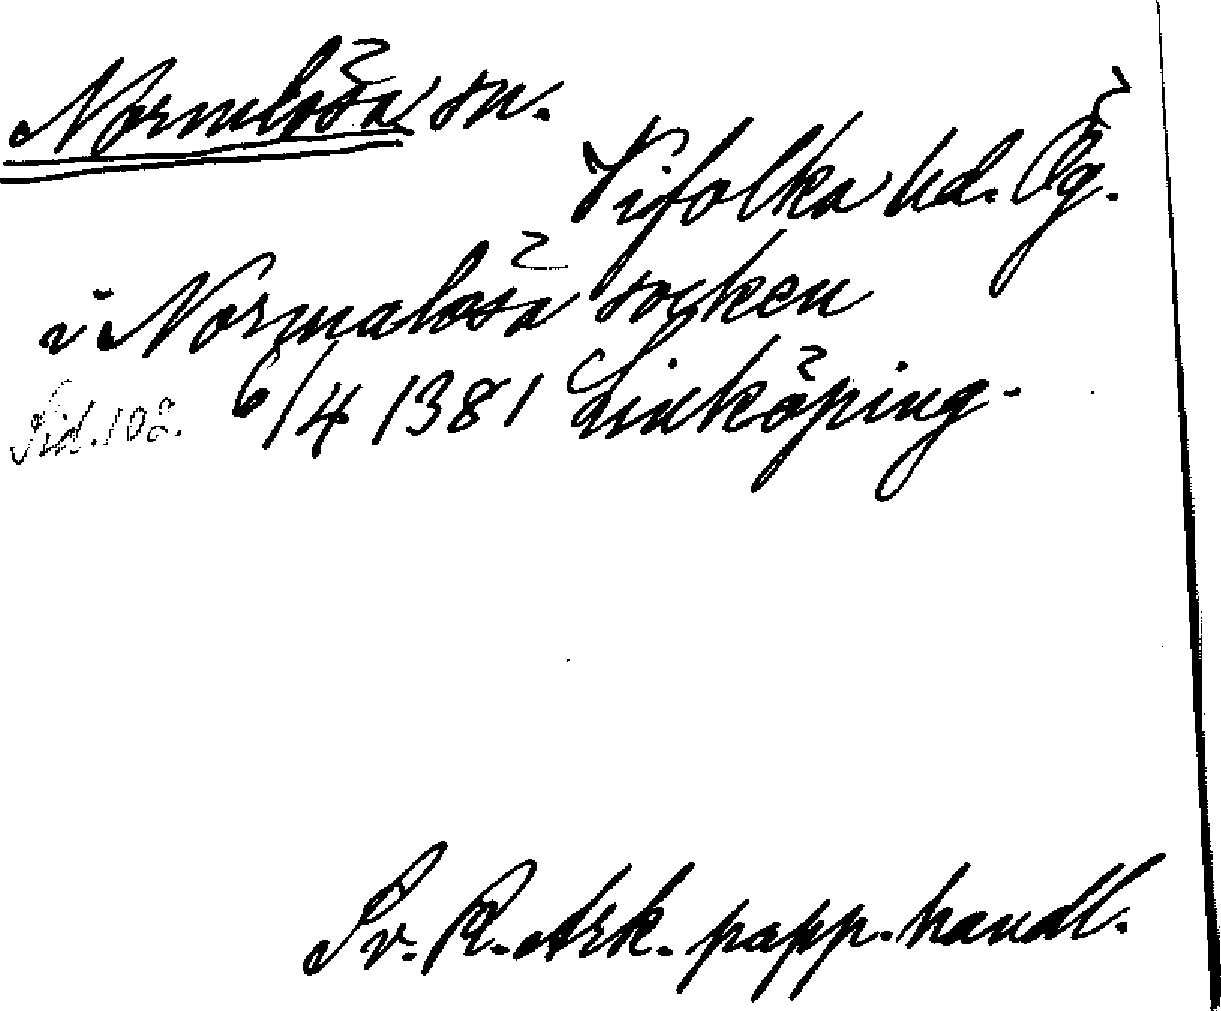 Normlösa sn.
Vifolka hd. Ög.
i Normalösa socken
Sid. 102. 6/4 1381 Linköping.
Sv. R. Ark. papp. handl.